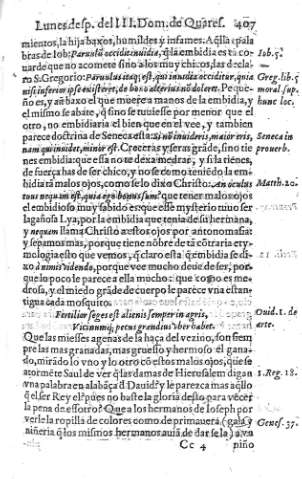 Lunes desp. del III. Dom. de Quares. 407
mientos, la hija baxos, humildes y infames. Aq̃llas pala
bras de Iob: Paruulũ occidit inuidia, q̃ la embidia es tã co-
uarde que no acomete sino a los muy chicos, las decla- Iob. 5.
ro S. Gregorio: Paruulus itaq; est, qui inuidia occiditur, quia Greg. lib. 5
nisi inferior ipse existeret, de bono alterius nõ doleret. Pe que- moral. sup.
ño es, y aun baxo el que muere a manos de la embidia, y hunc loc.
el mismo se abate, q̃ sino se tuuiesse por menor que el
otro, no embidiaria el bien que en el vee, y tambien
parece doctrina de Seneca esta: Si nõ inuideris, maior eris, Seneca in
nam qui inuidet, minor est. Creceras y seras grãde, sino tie prouerb.
nes embidia: que essa no te dexa medrar, y si la tienes,
de fuerça has de ser chico, y no se como teniẽdo la em
bidia tã malos ojos, como se lo dixo Christo: An oculus Matth. 20.
tuus nequam est, quia ego bonus sum? que tener malos ojos
el embidioso muy sabido es: que esse mysterio tuuo ser
lagañosa Lya, por la embidia que tenia de su hermana,
y nequam llama Christo a estos ojos por antonomasia:
y sepamos mas, porque tiene nõbre de tã cõtraria ety-
mologia esto que vemos, q̃ claro esta q̃ embidia se di-
xo à nimis videndo, porque vee mucho deue de ser, por-
que lo poco le parece a ella mucho: que como es me-
drosa, y el miedo grãde de cuerpo le parece vna estan-
tigua cada mosquito.
Fertilior seges est alienis semper in agris, Ouid. 1. de
Vicinumq; pecus grandius vber habet. arte.
Que las miesses agenas de la haça del vezino, son siem
pre las mas granadas, mas gruesso y hermoso el gana-
do, mirãdo lo vno y lo otro cõ ellos malos ojos, que se
atormẽte Saul de ver q̃ las damas de Hierusalem digan
vna palabra en alabãça d̃ Dauid? y le parezca mas aq̃llo 1. Reg. 18.
q̃l ser Rey el? pues no baste la gloria desto para vẽcer
la pena de essotro? Que a los hermanos de Ioseph por
verle la ropilla de colores como de primauera (gala y Genes. 37.
niñeria q̃ los mismos hermanos auiã de dar se la) a vn
Cc 4 niño